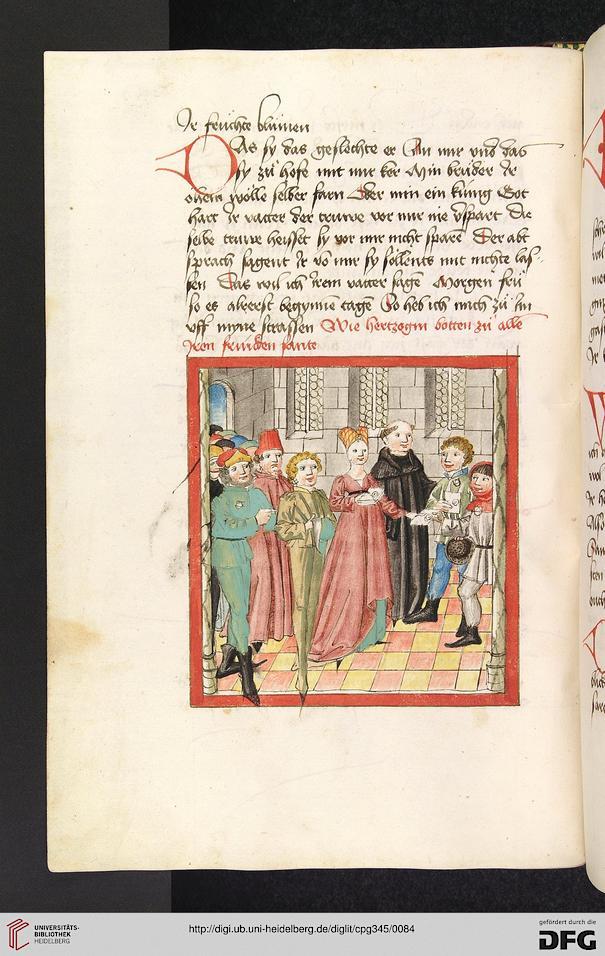 Ir früchte blümen
DAs sy das geslechte er An mir vnd das
sy zü hofe mit mir ker Min brüder Ir
öhem wölle selber farn Oder min ein küng Got
hart Ir vatter der truwe vor mir nie
selbe truwe heisset sy vor mir nicht sparē Der abt
sprach sagent Ir vō mir sy söllents mit nichte las-
sen Das wil ich Irem vatter sagē Morgen frü
so es aberest begynnē tagē So heb ich mich zü
vff myne strassen Wie hertzogin botten zü alle
Iren frunden sante
UNIVERSITÄTS-
BIBLIOTHEK
HEIDELBERG
http://digi.ub.uni-heidelberg.de/diglit/cpg345/0084
gefördert durch die
DFG